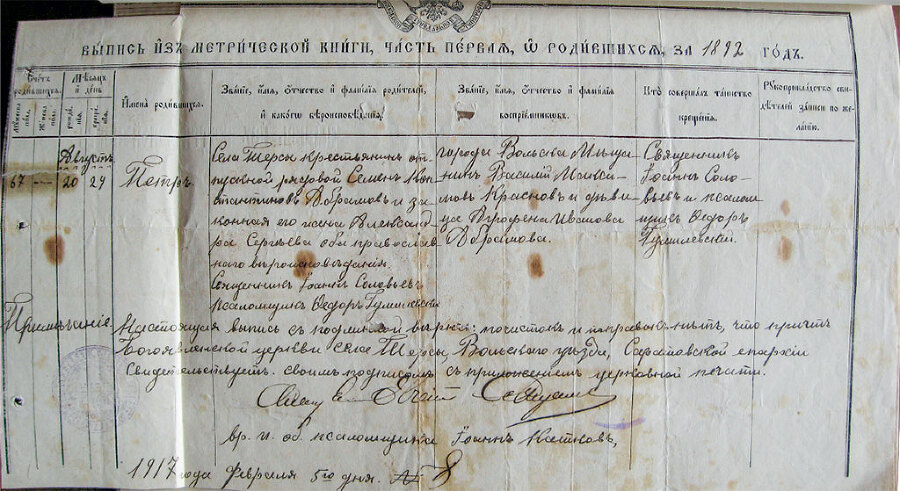 ВЫПИСЬ ИЗЪ МЕТРИЧЕСКОЙ КНИГИ, ЧАСТЬ ПЕРВАЯ, Ѡ РОДИВШИХСЯ, ЗА 1892 ГОДЪ.
Счетъ родившихъ.
Мѣсяцъ и день
Имена родившихся.
Званіе, имя, отчество и фамилія родителей, и какого вѣроисповѣданія.
Званіе, имя, отчество и фамилія воспріемниковъ.
Кто совершалъ таинство крещенія.
Рукоприкладство свидѣтелей записи по желанію.
Августъ
67
20
24
Петръ
Села Терсы крестьянинъ от-
пускной рядовой Семенъ Кон-
стантиновъ Абрамовъ и за-
конная его жена Александ-
ра Сергѣева оба православ-
наго вѣроисповѣданія.
Священникъ Іоаннъ Соловьевъ
псаломщикъ Ѳедоръ Гумилевскій
города Вольска Мѣща-
нинъ Василій Макси-
мовъ Красновъ и дѣви-
ца Агрофена Иванова
Абрамова.
Священникъ
Іоаннъ Соло-
вьевъ и псалом-
щикъ Ѳедоръ
Гумилевскій.
Примѣчаніе.
Настоящая выпись съ подлинной вѣрна: что причтъ
Богоявленской церкви села Терсы, Вольскаго уѣзда, Саратовской епархіи
Свидѣтельствуетъ своимъ подписомъ съ приложеніемъ церковной печати.
вр. и. об. псаломщика Іоаннъ
1917 года Февраля 5го дня. № 8